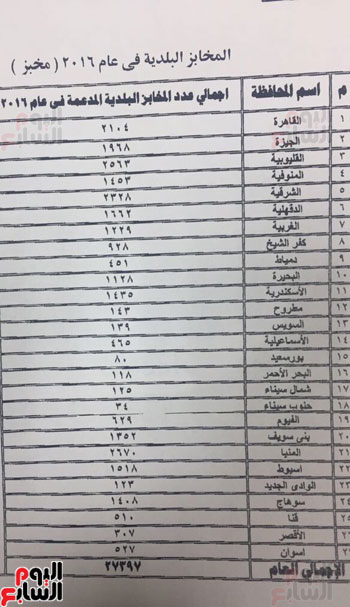 المخابز البلدية فى عام ٢٠١٦ ( مخبز )
م اسم المحافظة اجمالي عدد المخابز البلدية المدعمة فى عام ٢٠١٦
١ القاهرة ٢١٠٤
٢ الجيزة ١٩٦٨
٣ القليوبية ٢٥٦٣
٤ المنوفية ١٤٥٣
٥ الشرقية ٢٣٢٨
٦ الدقهلية ١٦٦٢
٧ الغربية ١٢٢٩
٨ كفر الشيخ ٩٢٨
٩ دمياط ٤٥١
١٠ البحيرة ١١٢٨
١١ الأسكندرية ١٤٣٥
١٢ مطروح ١٤٣
١٣ السويس ١٣٩
١٤ الأسماعيلية ٤٦٥
١٥ بورسعيد ٨٠
١٦ البحر الأحمر ١١٨
١٧ شمال سيناء ١٢٥
١٨ جنوب سيناء ٣٤
١٩ الفيوم ٦٢٩
بنى سويف ١٣٥٢
المنيا ٢٦٧٠
اسيوط ١٥١٨
الوادى الجديد ١٢٣
سوهاج ١٤٠٨
قنا ٥١٠
الأقصر ٣٠٧
اسوان ٥٢٧
الإجمالي العام ٢٧٣٩٧
اليوم السابع